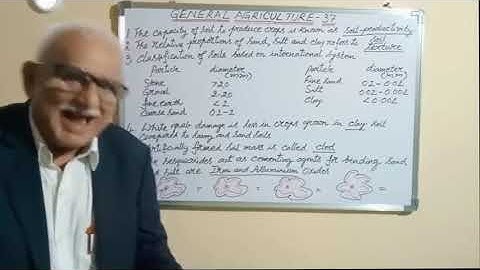 GENERAL AGRICULTURE-37
1 The capacity of soil to produce crops is known as soil productivity
2 The relative proportions of sand, silt and clay refers to soil texture
3 Classification of Soils based on international System
Particle diameter (mm) Particle diameter (mm)
Stone >20 Fine Sand 0.2-0.02
Gravel 2-20 Silt 0.02-0.002
Fine earth <2 Clay <0.002
Coarse Sand 0.2-2
White grub damage is less in crops grown in clay soil
compared to loamy and sandy soils
artificially formed soil mass is called clod
sesquioxides act as cementing agents for binding sand
silt are Iron and Aluminium oxides